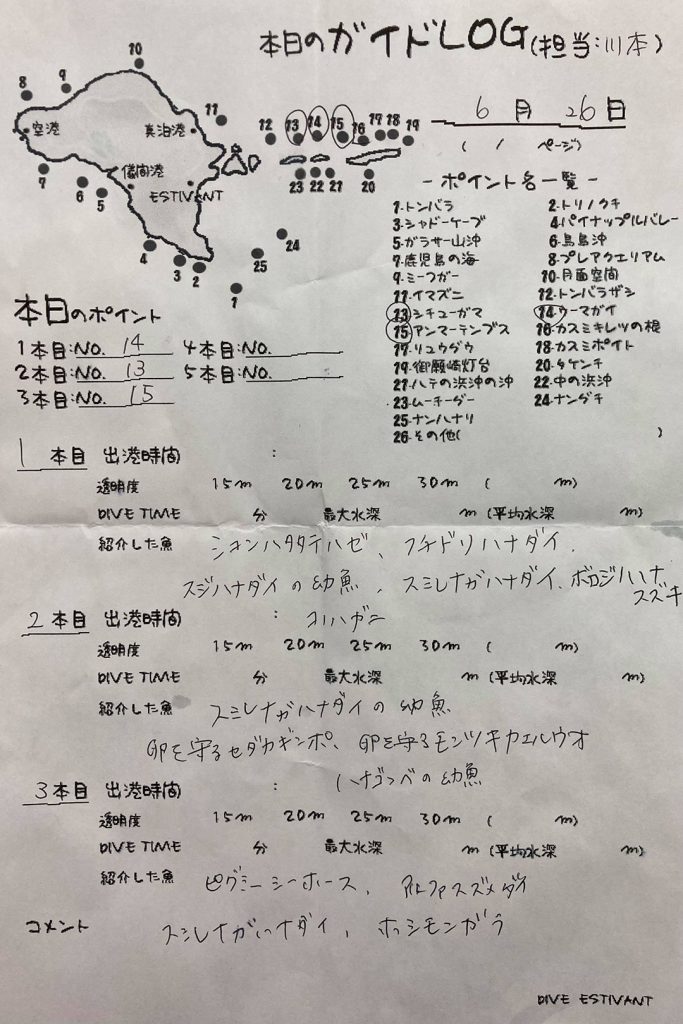 本日のガイドLOG(担当:川本)
6月26日
(1ページ)
10
9
8
空港
真泊港
11
12 13 14 15 16 17 18 19
儀間港
23 22 21 20
7
6
5
ESTIVANT
24
4
3
2
25
1
-ポイント名一覧-
1.トンバラ 2.トリノクチ
3.シャドーケーブ 4.パイナップルバレー
5.ガラサー山沖 6.鳥島沖
7.鹿児島の海 8.プレアクエリアム
9.ミーフガー 10.月面空間
11.イマズニ 12.トンバラザシ
13.シチューガマ 14.ウーマガイ
15.アンマーテンブス 16.カスミキレツの根
17.リュウグウ 18.カスミポイト
19.御願崎灯台 20.タケンチ
21.ハテの浜沖の沖 22.中の浜沖
23.ムーチーグー 24.ナングチ
25.ナンハナリ
26.その他( )
本日のポイント
1本目:NO. 14 4本目:NO.
2本目:NO. 13 5本目:NO.
3本目:NO. 15
1本目 出港時間 :
透明度 15m 20m 25m 30m ( m)
DIVE TIME 分 最大水深 m (平均水深 m)
紹介した魚 シコンハタタテハゼ、フチドリハナダイ、
スジハナダイの幼魚、スミレナガハナダイ、ボロジノハナスズキ
2本目 出港時間 : コハガニ
透明度 15m 20m 25m 30m ( m)
DIVE TIME 分 最大水深 m (平均水深 m)
紹介した魚 スミレナガハナダイの幼魚
卵を守るセダカギンポ、卵を守るモンツキカエルウオ
ハナゴンベの幼魚
3本目 出港時間 :
透明度 15m 20m 25m 30m ( m)
DIVE TIME 分 最大水深 m (平均水深 m)
紹介した魚 ピグミーシーホース、アルファスズメダイ
コメント スミレナガハナダイ、ホシモンガラ
DIVE ESTIVANT